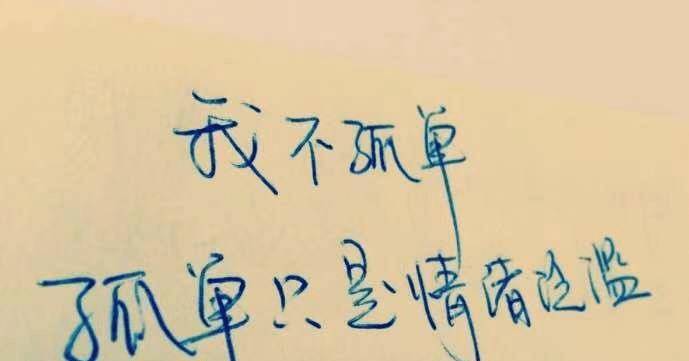 我不孤单
孤单只是情绪泛滥